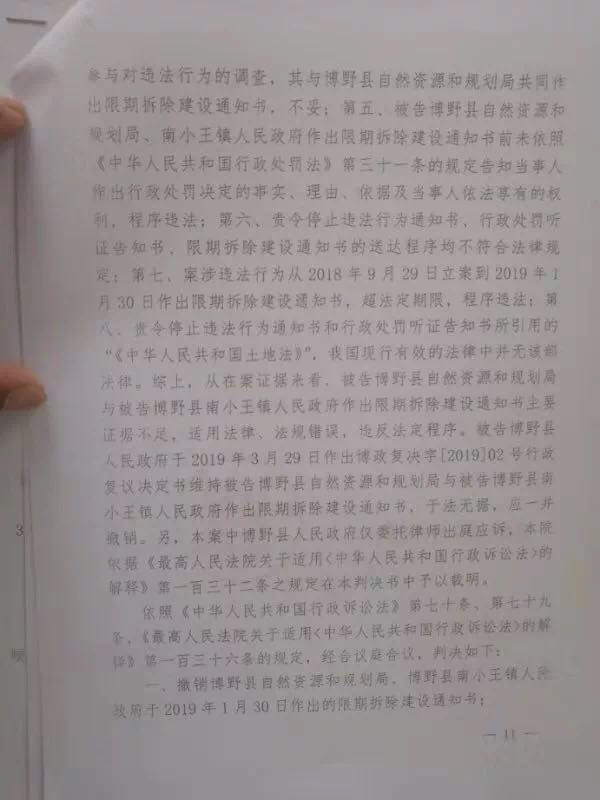 参与对违法行为的调查，其与博野县自然资源和规划局共同作
出限期拆除建设通知书，不妥；第五、被告博野县自然资源和
规划局、南小王镇人民政府作出限期拆除建设通知书前未依照
《中华人民共和国行政处罚法》第三十一条的规定告知当事人
作出行政处罚决定的事实、理由、依据及当事人依法享有的权
利，程序违法；第六、责令停止违法行为通知书，行政处罚听
证告知书，限期拆除建设通知书的送达程序均不符合法律规
定；第七、案涉违法行为从2018年9月29日立案到2019年1
月30日作出限期拆除建设通知书，超法定期限，程序违法；第
八、责令停止违法行为通知书和行政处罚听证告知书所引用的
“《中华人民共和国土地法》”，我国现行有效的法律中并无该部
法律。综上，从在案证据来看，被告博野县自然资源和规划局
与被告博野县南小王镇人民政府作出限期拆除建设通知书主要
证据不足，适用法律、法规错误，违反法定程序。被告博野县
人民政府于2019年3月29日作出博政复决字[2019]02号行政
复议决定书维持被告博野县自然资源和规划局与被告博野县南
小王镇人民政府作出限期拆除建设通知书，于法无据，应一并
撤销。另，本案中博野县人民政府仅委托律师出庭应诉，本院
依据《最高人民法院关于适用〈中华人民共和国行政诉讼法〉的
解释》第一百三十二条之规定在本判决书中予以载明。
依照《中华人民共和国行政诉讼法》第七十条、第七十九
条，《最高人民法院关于适用〈中华人民共和国行政诉讼法〉的解
释》第一百三十六条的规定，经合议庭合议，判决如下：
一、撤销博野县自然资源和规划局，博野县南小王镇人民
政府于2019年1月30日作出的限期拆除建设通知书；
— 11 —
3